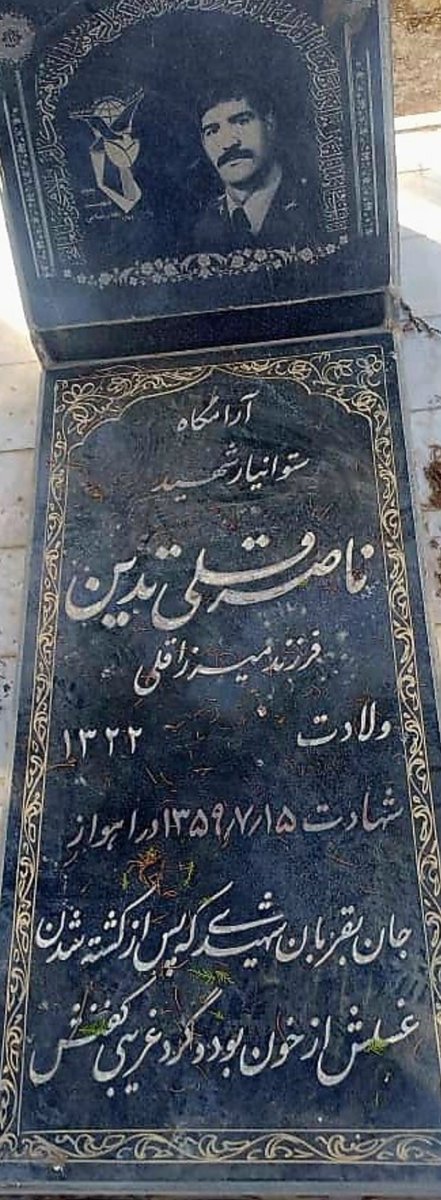 آرامگاه
ستوانیار شهید
ناصرقلی تدین
فرزند میرزاقلی
ولادت ۱۳۲۲
شهادت ۱۳۵۹٫۷٫۱۵ در اهواز
جان بقربان شهیدی که پس از کشته شدن
غسلش از خون بود و گرد غریبی کفنش